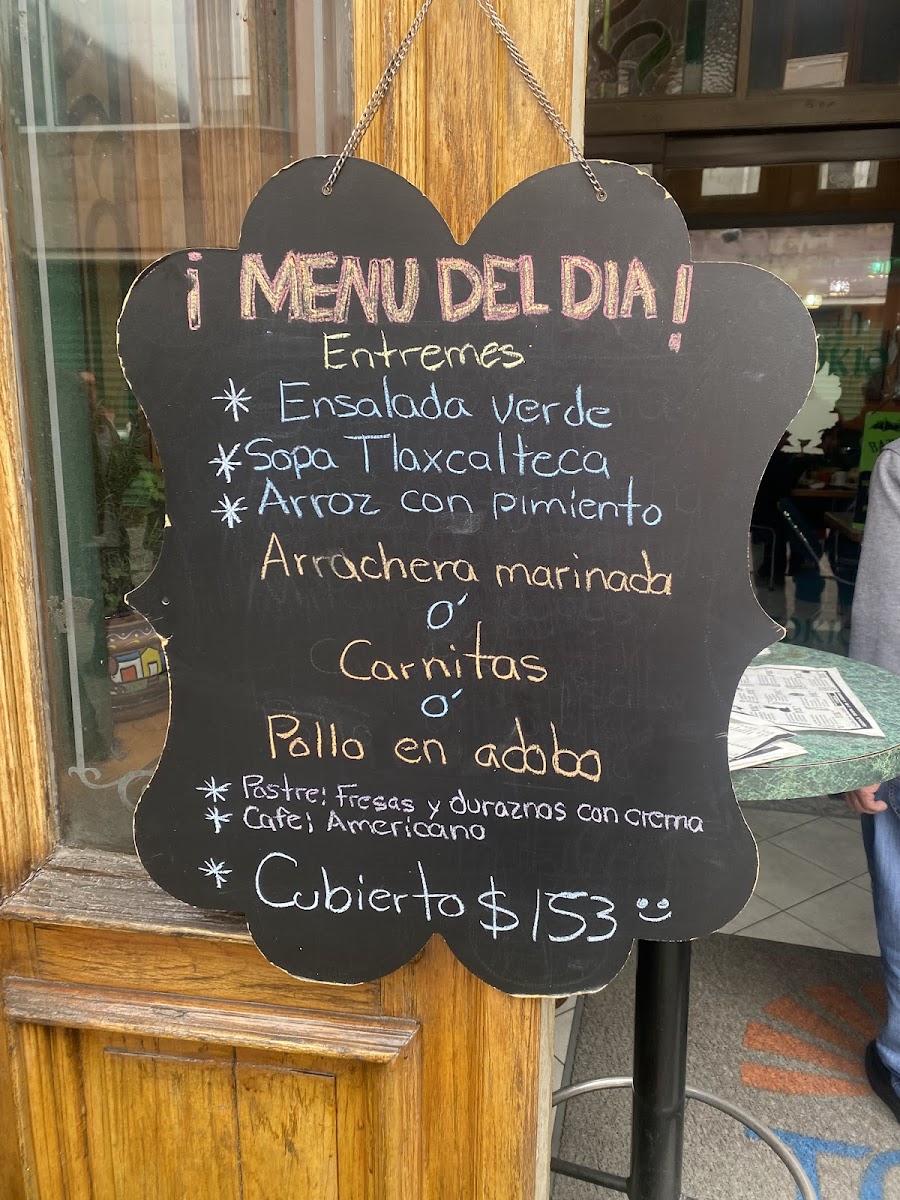 ¡ MENU DEL DIA !
Entremes
* Ensalada verde
* Sopa Tlaxcalteca
* Arroz con pimiento
Arrachera marinada
ó
Carnitas
ó
Pollo en adobo
* Postre: Fresas y duraznos con crema
* Cafe: Americano
* Cubierto $153